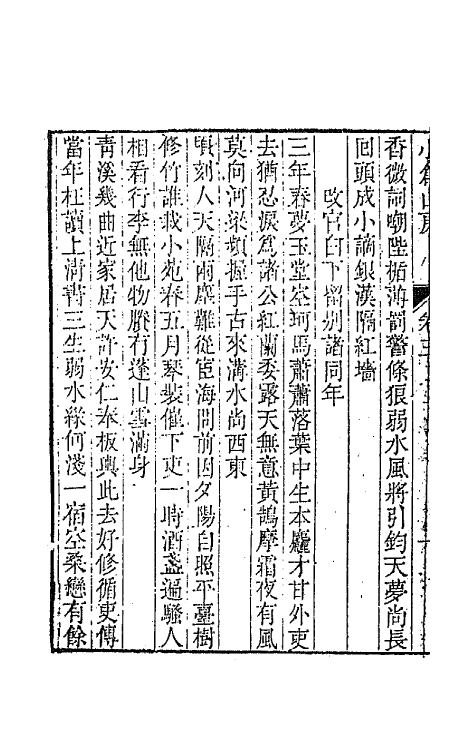 小倉山房
卷三
香微詞嘲陛楯薄罰警條狼弱水風將引鈞天夢尚長
回頭成小謫銀漢隔紅墻
改官白下留別諸同年
三年春夢玉堂空珂馬蕭蕭落葉中生本麤才甘外吏
去猶忍淚爲諸公紅蘭委露天無意黃鵠摩霜夜有風
莫向河梁頻握手古來溝水尚西東
頃刻人天隔兩塵難從宦海問前因夕陽自照平臺樹
修竹誰栽小苑春五月琴裝催下吏一時酒盞遍騷人
相看行李無他物賸有蓬山雲滿身
青溪幾曲近家居天許安仁奉板輿此去好修循吏傳
當年枉讀上清書三生弱水緣何淺一宿空桑戀有餘